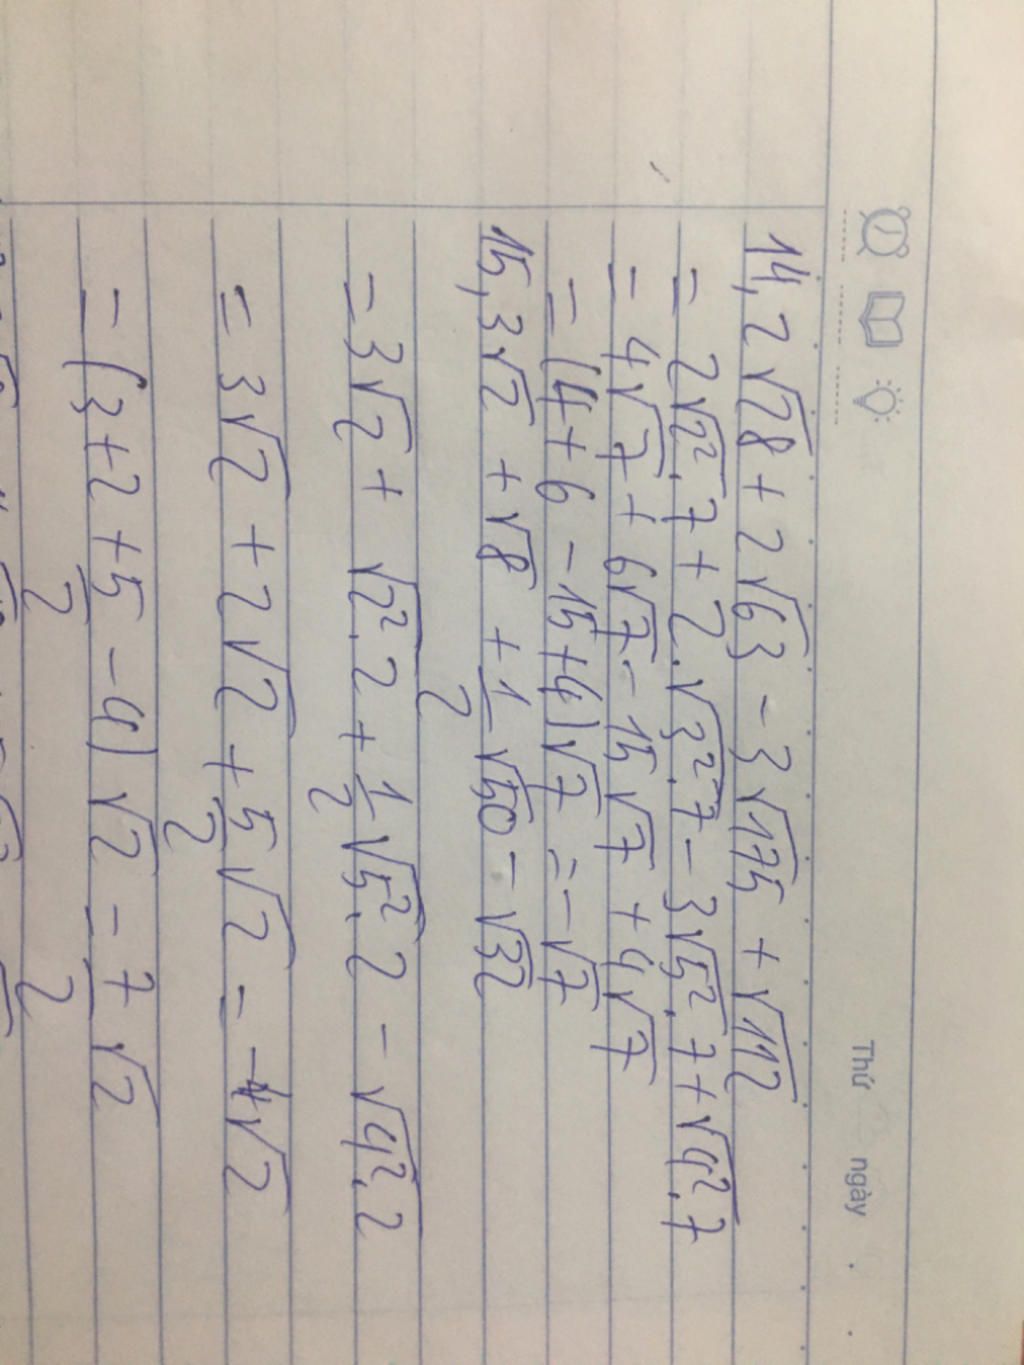 Thứ ngày
14, 2√28 + 2√63 - 3√175 + √112
= 2√2².7 + 2.√3².7 - 3√5².7 + √4².7
= 4√7 + 6√7 - 15√7 + 4√7
= (4 + 6 - 15 + 4)√7 = -√7
15, 3√2 + √8 + 1/2 √50 - √32
= 3√2 + √2².2 + 1/2 √5².2 - √4².2
= 3√2 + 2√2 + 5/2 √2 = -4√2
= (3 + 2 + 5/2 - 4)√2 = 7/2 √2